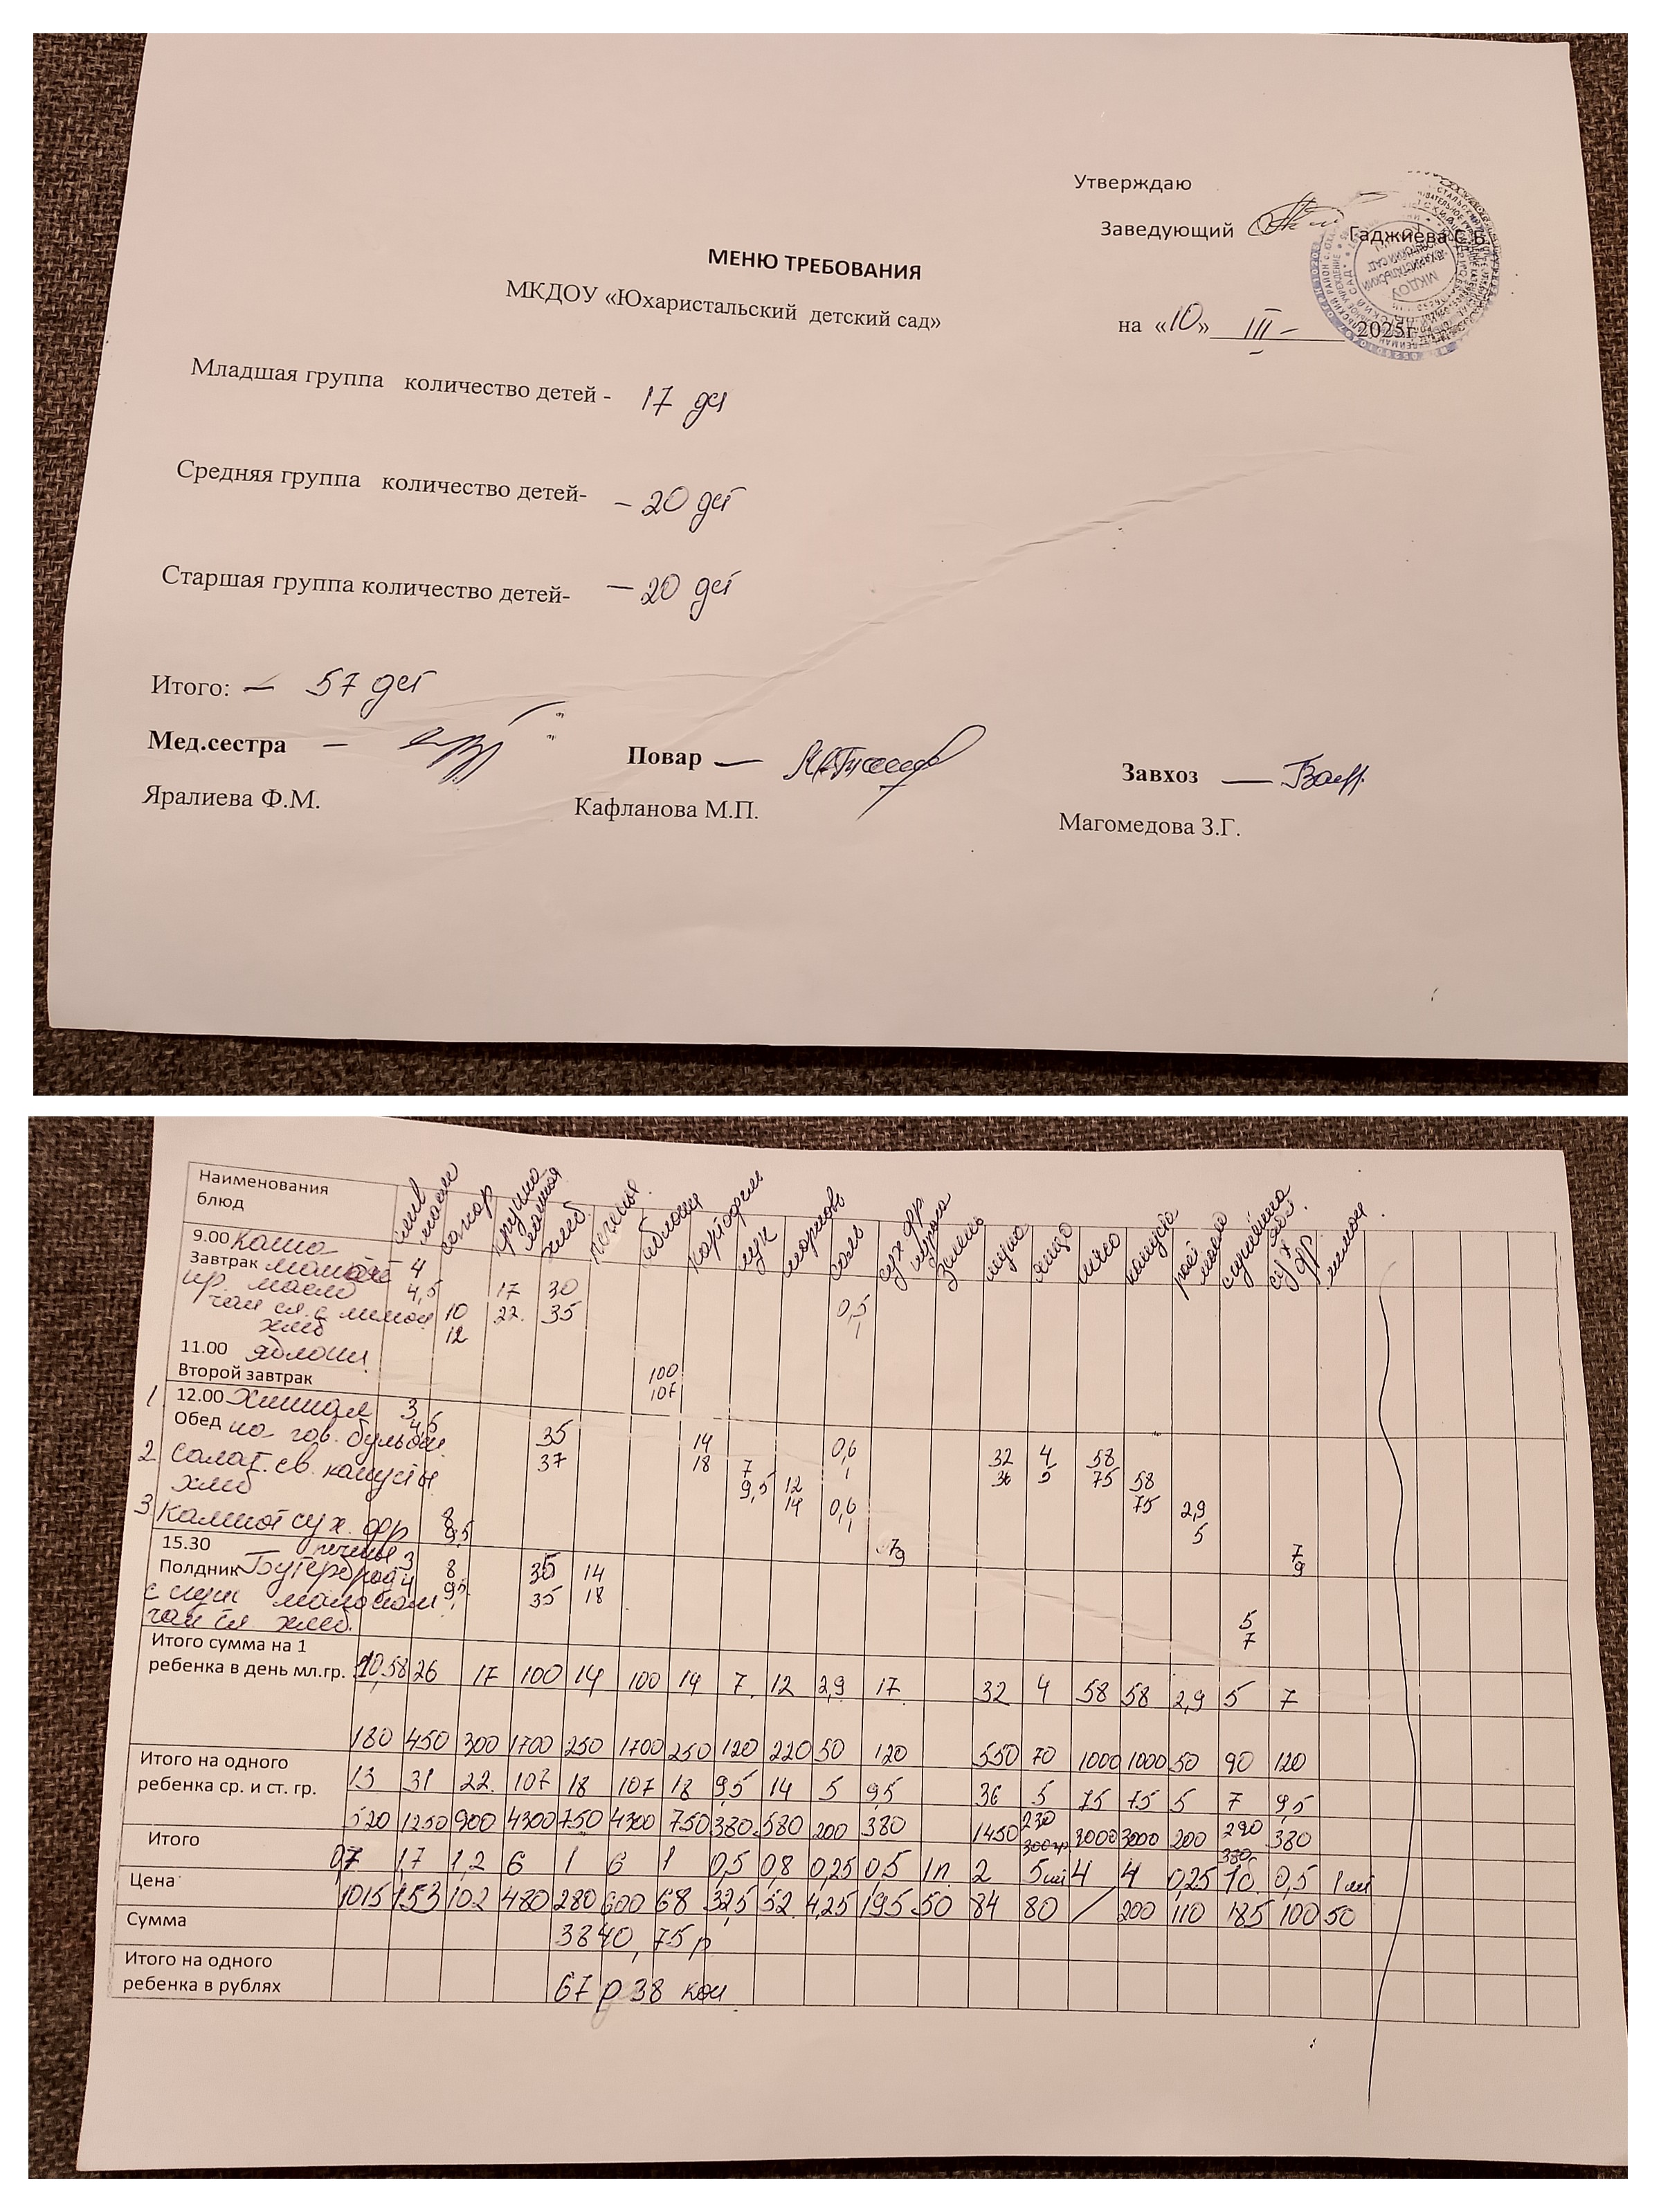 Утверждаю
Заведующий Гаджиева С.Б.
МЕНЮ ТРЕБОВАНИЯ
МКДОУ «Юхаристальский детский сад»
на «10» III – 2025г
Младшая группа количество детей - 17 дет
Средняя группа количество детей- – 20 дет
Старшая группа количество детей- – 20 дет
Итого: – 57 дет
Мед.сестра – Повар – Завхоз –
Яралиева Ф.М. Кафланова М.П. Магомедова З.Г.
Наименования блюд слив масло сахар крупа манная хлеб печенье яблоки картофель лук морковь соль сух фр зелень мука яйцо мясо капуста раст масло сух фр лимон
9.00 Каша 4
Завтрак манная 4,5 17 30
сл. масло 10 22 35 0,5
чай сл. с лимон 12 1
хлеб
11.00 яблоки 100
Второй завтрак 107
1 12.00 Хинкал 3
Обед на гов. бульоне 4,5 35 14 0,6 32 4 58
2 салат св. капусты 37 18 7 1 36 5 75 58
хлеб 9,5 12 75 2,9
14 0,6 5
3 Компот сух. фр 8 1 7 7
9,5 9 9
15.30 печенье 3 8 35 14
Полдник Бутерброд 4 9,5 35 18
с слив маслом 5
чай сл. хлеб. 7
Итого сумма на 1
ребенка в день мл.гр. 10,58 26 17 100 14 100 14 7 12 2,9 17 32 4 58 58 2,9 5 7
180 450 300 1700 250 1700 250 120 220 50 120 550 70 1000 1000 50 90 120
Итого на одного
ребенка ср. и ст. гр. 13 31 22 107 18 107 18 9,5 14 5 9,5 36 5 75 75 5 7 9,5
520 1250 900 4300 750 4300 750 380 580 200 380 1450 230 3000 3000 200 290 380
Итого 0,7 1,7 1,2 6 1 6 1 0,5 0,8 0,25 0,5 1п 2 5шт 4 4 0,25 1б 0,5 1шт
Цена 1015 153 102 480 280 600 68 32,5 52 4,25 195 50 84 80 / 200 110 185 100 50
Сумма 3840,75 р
Итого на одного
ребенка в рублях 67 р 38 коп